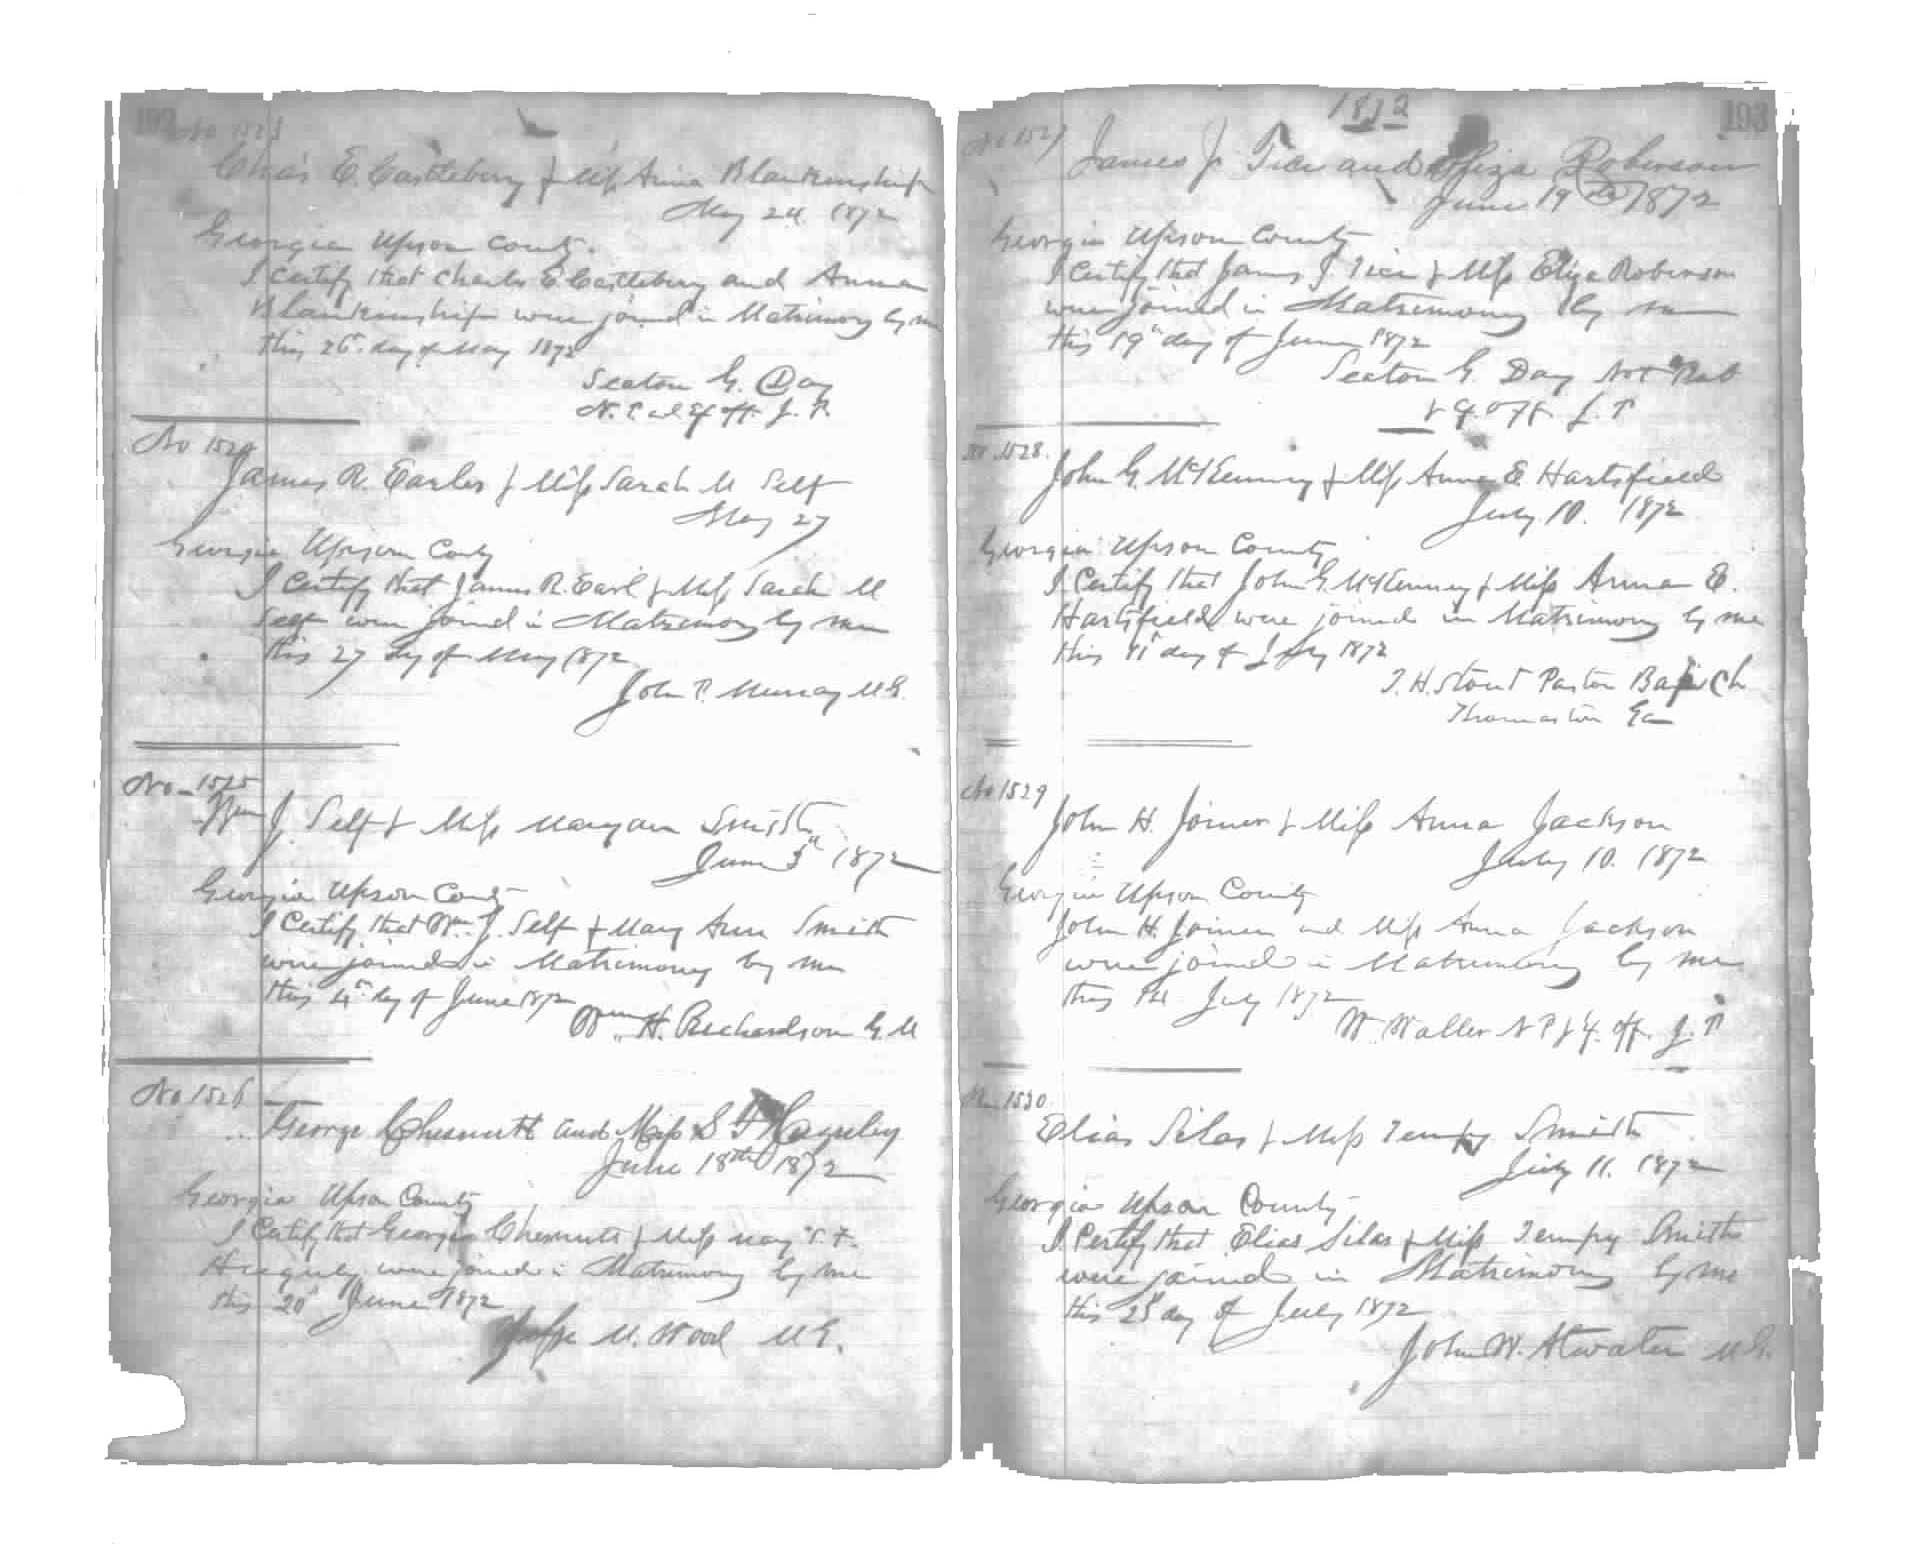 192
No 1523
Chas E. Castlebery & Miss Anna Blankinship
May 24 1872
Georgia Upson County.
I certify that Charles E Castlebery and Anna
Blankinship were joined in Matrimony by me
this 26th day of May 1872
Seaton G. Day
N. P. and Ex off. J. P.
No 1524
James R. Earles & Miss Sarah M Self
May 27
Georgia Upson County
I Certify that James R. Earl & Miss Sarah M
Self were joined in Matrimony by me
this 27 day of May 1872
John P. Murray M.G.
No - 1525
Wm J. Self & Miss Maryann Smith
June 3rd 1872
Georgia Upson County
I Certify that Wm. J. Self & Mary Ann Smith
were joined in Matrimony by me
this 4th day of June 1872
Wm. H. Richardson G M
No 1526
George Chesnutt and Miss S F Haguley
June 18th 1872
Georgia Upson County
I Certify that George Chesnutt & Miss May F.
were joined in Matrimony by me
this 20th June 1872
M. Wood M G.
1872
193
No 1527
James J. Tice and Eliza Roberson
June 19th 1872
Georgia Upson County
I Certify that James J. Tice & Miss Eliza Roberson
were joined in Matrimony by me
this 19th day of June 1872
Seaton G. Day Not Pub
& Ex. off. J. P
No 1528.
John G. McKenney & Miss Anna E. Hartsfield
July 10. 1872
Georgia Upson County
I Certify that John G. McKenney & Miss Anna E.
Hartsfield were joined in Matrimony by me
this 11th day of July 1872
T. H. Stout Pastor Bap Ch
Thomaston Ga
No 1529
John H. Joiner & Miss Anna Jackson
July 10. 1872
Georgia Upson County
John H. Joiner and Miss Anna Jackson
were joined in Matrimony by me
this 14 July 1872
W. Waller N P & Ex. off. J. P
No 1530
Elias Silas & Miss Tempy Smith
July 11. 1872
Georgia Upson County
I Certify that Elias Silas & Miss Tempy Smith
were joined in Matrimony by me
this 28 day of July 1872
John W. Atwater M.G.